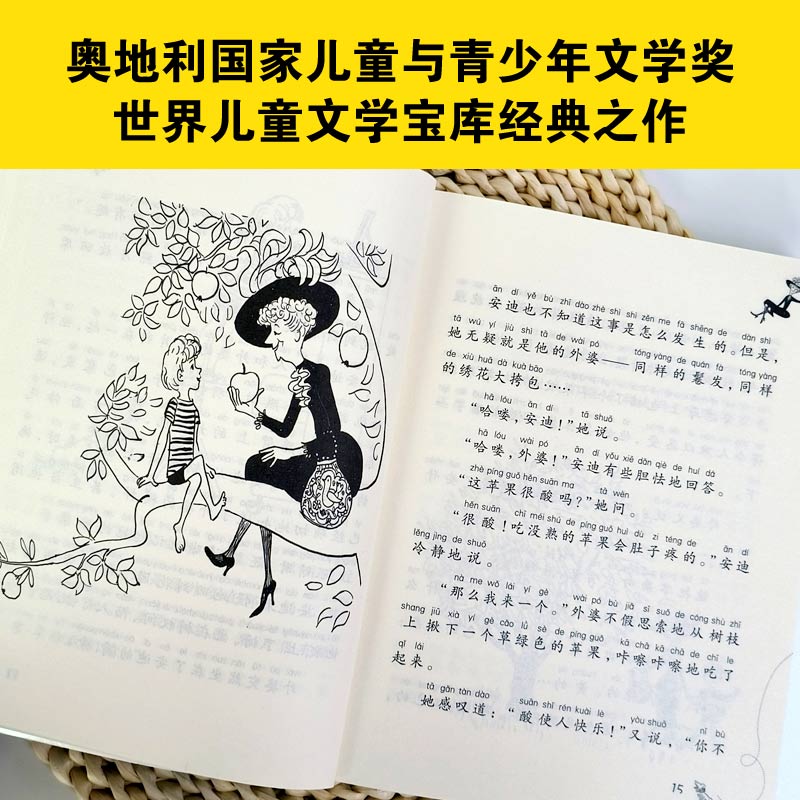 奥地利国家儿童与青少年文学奖
世界儿童文学宝库经典之作
ān dí yě bù zhī dào zhè shì shì zěn me fā shēng de dàn shì
安迪也不知道这事是怎么发生的。但是，
tā wú yí jiù shì tā de wài pó tóng yàng de quán fà tóng yàng
她无疑就是他的外婆——同样的鬈发，同样
de xiù huā dà kuà bāo
的绣花大挎包……
hā lóu ān dí tā shuō
“哈喽，安迪！”她说。
hā lóu wài pó ān dí yǒu xiē dǎn qiè de huí dá
“哈喽，外婆！”安迪有些胆怯地回答。
zhè píng guǒ hěn suān ma tā wèn
“这苹果很酸吗？”她问。
hěn suān chī méi shú de píng guǒ huì dù zi téng de ān dí
“很酸！吃没熟的苹果会肚子疼的。”安迪
lěng jìng de shuō
冷静地说。
nà me wǒ lái yí gè wài pó bù jiǎ sī suǒ de cóng shù zhī
“那么我来一个。”外婆不假思索地从树枝
shang jiū xià yí gè cǎo lǜ sè de píng guǒ kā chā kā chā de chī le
上揪下一个草绿色的苹果，咔嚓咔嚓地吃了
qǐ lái
起来。
tā gǎn tàn dào suān shǐ rén kuài lè yòu shuō nǐ bù
她感叹道：“酸使人快乐！”又说，“你不
15